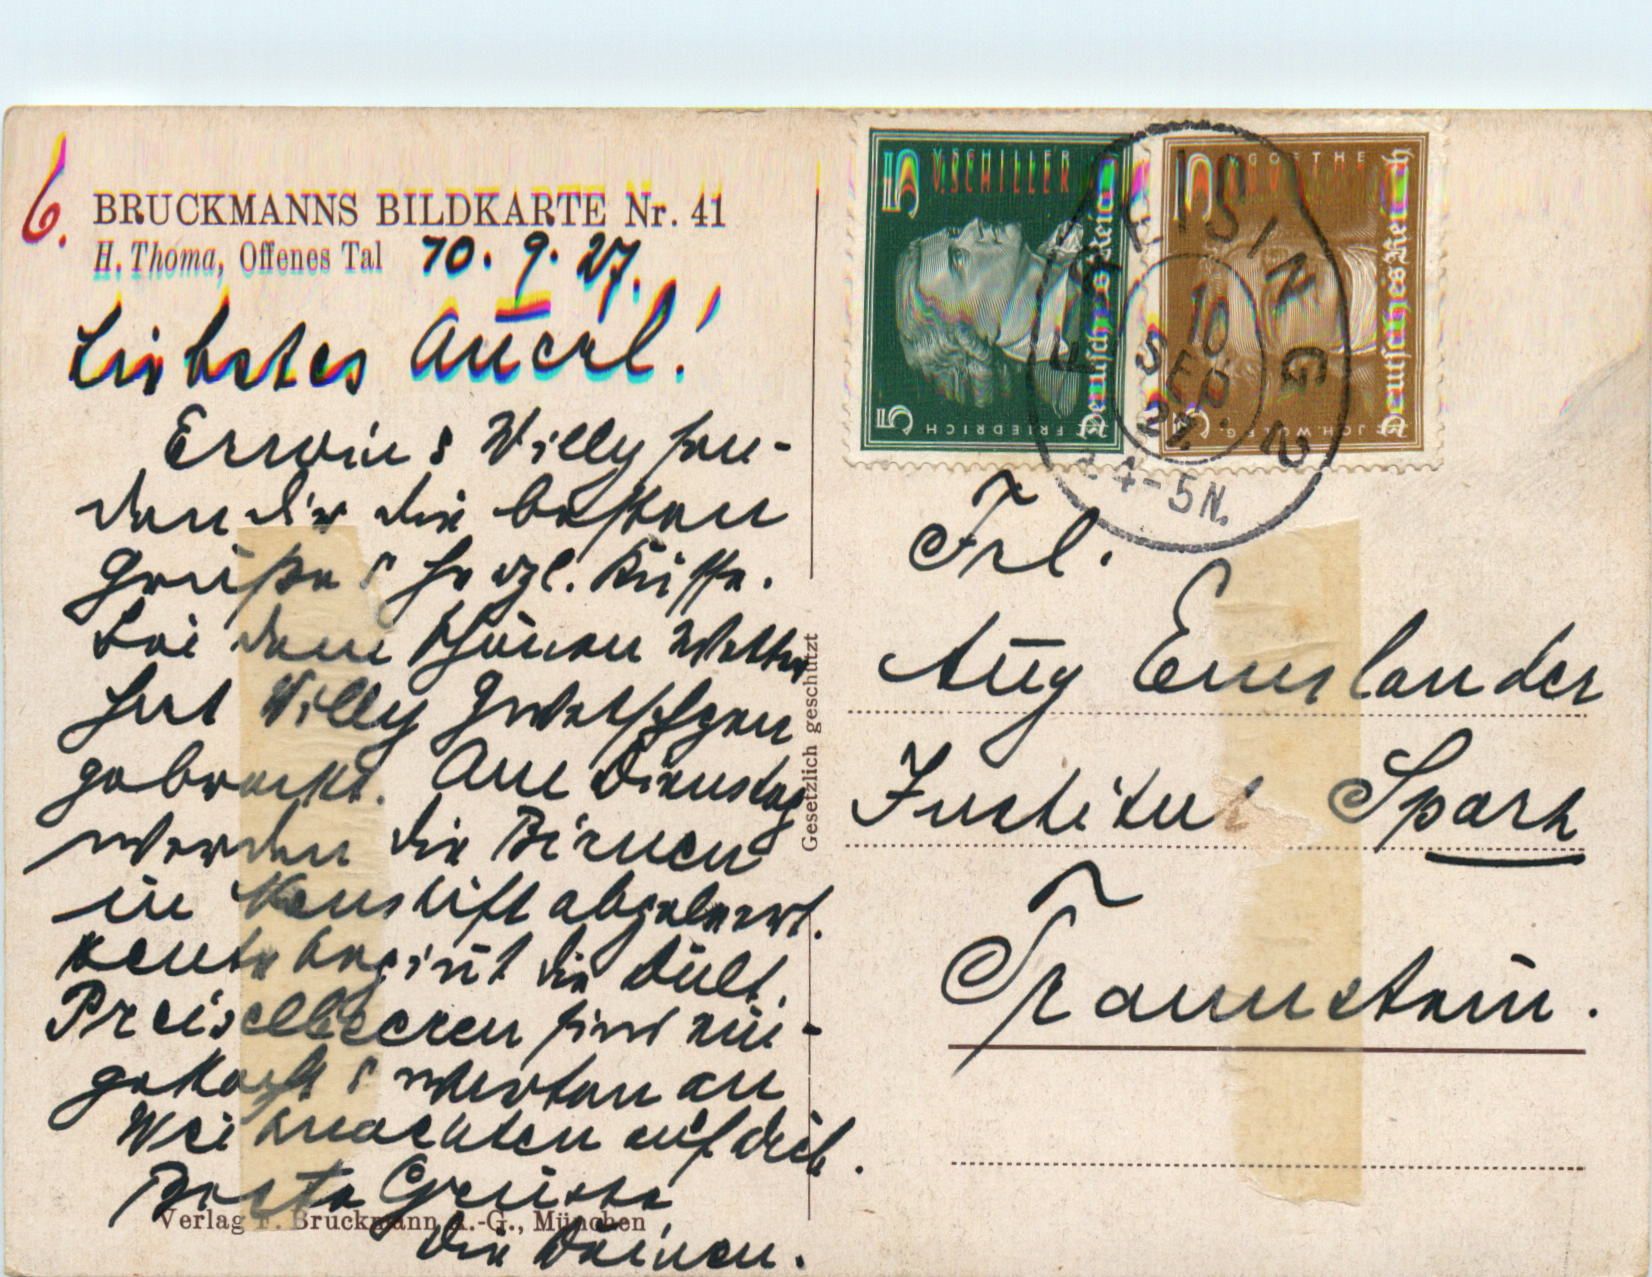 6.
BRUCKMANNS BILDKARTE Nr. 41
H. Thoma, Offenes Tal 10. 9. 27.
Liebstes Auerl!
Erwin & Willy sen-
den dir die besten
Grüße & herzl. Küsse.
Bei dem schönen Wetter
hat Willy Zwetschgen
gebrockt. Am Dienstag
werden die Birnen
in abgeleert.
Heute beginnt die Dult.
Preiselbeeren sind ein-
gekocht & warten an
Weihnachten auf dich.
Beste Grüsse
die Deinen.
Verlag F. Bruckmann A.-G., München
Gesetzlich geschützt
5 V. SCHILLER
5 FRIEDRICH
Deutsches Reich
3 V. GOETHE
3 JOH. WOLFG.
Deutsches Reich
FREISING 2
10
SEP
27.
4-5 N.
Frl.
Aug Emslander
Institut Sparz
Traunstein.